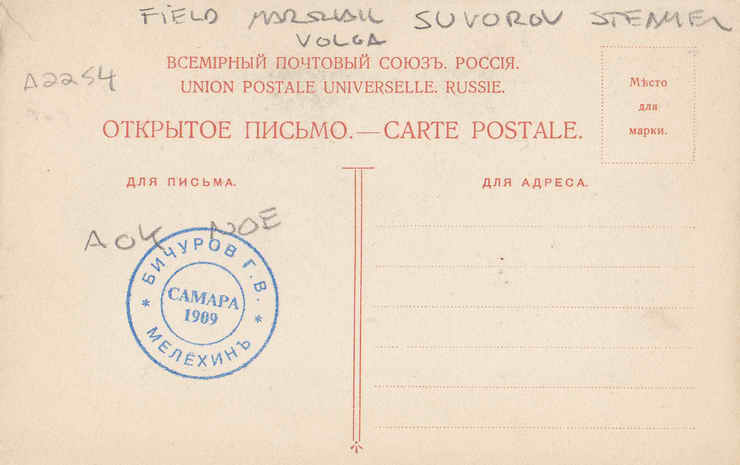 FIELD MARSHALL SUVOROV STEAMER
VOLGA
A2254
ВСЕМІРНЫЙ ПОЧТОВЫЙ СОЮЗЪ. РОССІЯ.
UNION POSTALE UNIVERSELLE. RUSSIE.
ОТКРЫТОЕ ПИСЬМО.—CARTE POSTALE.
Мѣсто
для
марки.
ДЛЯ ПИСЬМА.
ДЛЯ АДРЕСА.
NOE
* БИЧУРОВ Г.В. *
САМАРА
1909
МЕЛЁХИНЪ